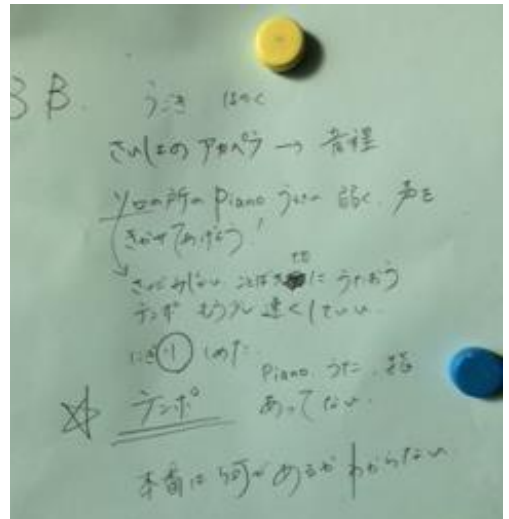 3B. うごき はやく
さいしょのアカペラ → 音程
ソロの所の Piano うたは 弱く、声を
きかせてあげよう!
ことば 大切に うたおう
テンポ もう少し速くしていい。
にぎりしめた
Piano、うた、指
☆ テンポ あってない。
本番は何があるかわからない